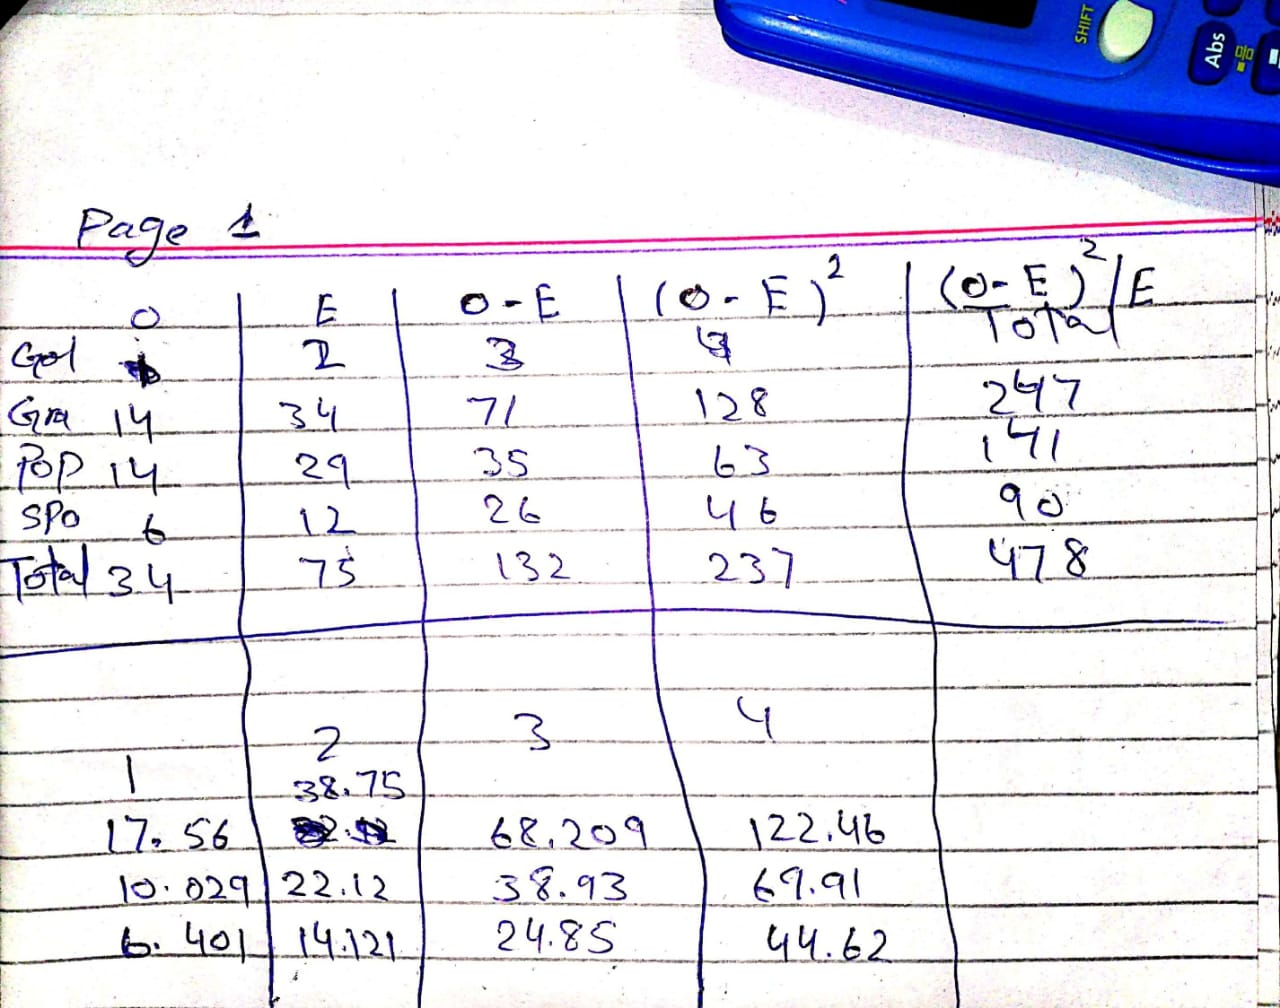 SHIFT
Abs
Page 1
O E O - E (O - E)² (O - E)²/E
Gol 2 3 4 Total
Gra 14 34 71 128 247
Pop 14 29 35 63 141
SPO 6 12 26 46 90
Total 34 75 132 237 478
1 2 3 4
38.75
17.56 68.209 122.46
10.029 22.12 38.93 69.91
6.401 14.121 24.85 44.62